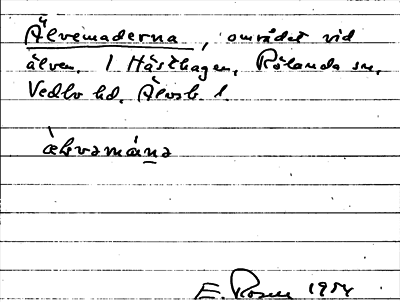 Älvemaderna, området vid
älven. 1 Hästhagen, Rölanda sn,
Vedbo hd. Älvsb. l.
E. Rosen 1954